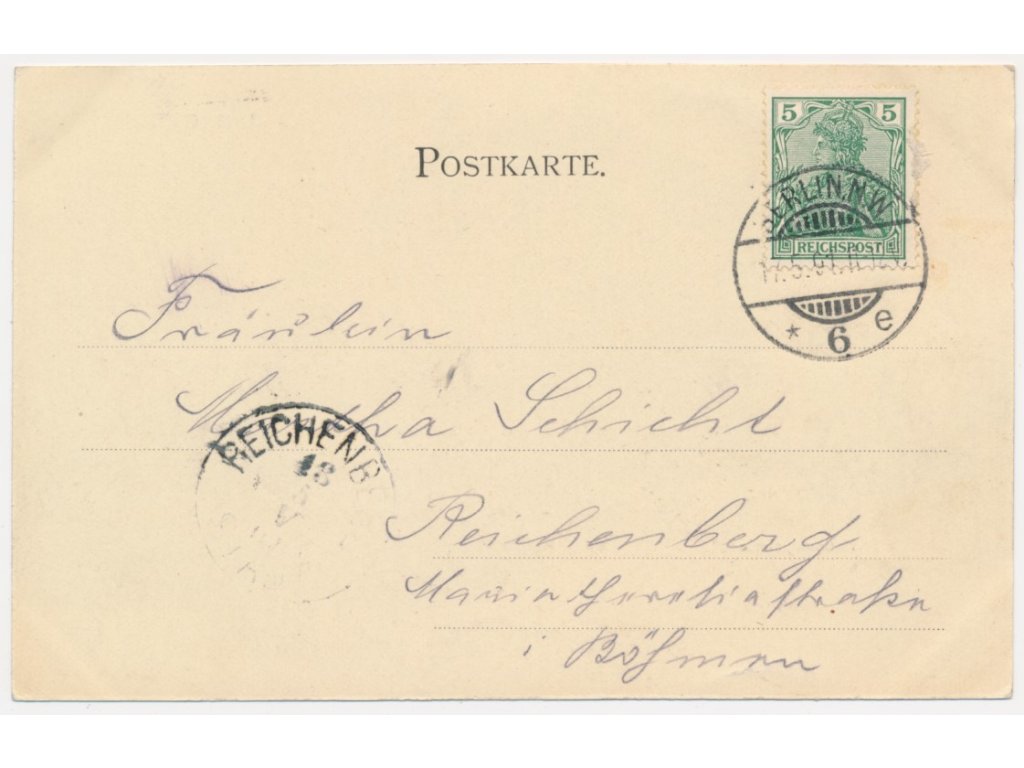 POSTKARTE.
5 5
REICHSPOST
BERLIN.N.W.
* 6 e
Fräulein
Martha Schicht
REICHENBE
18
Reichenberg
Maria Theresiastraße
i Böhmen